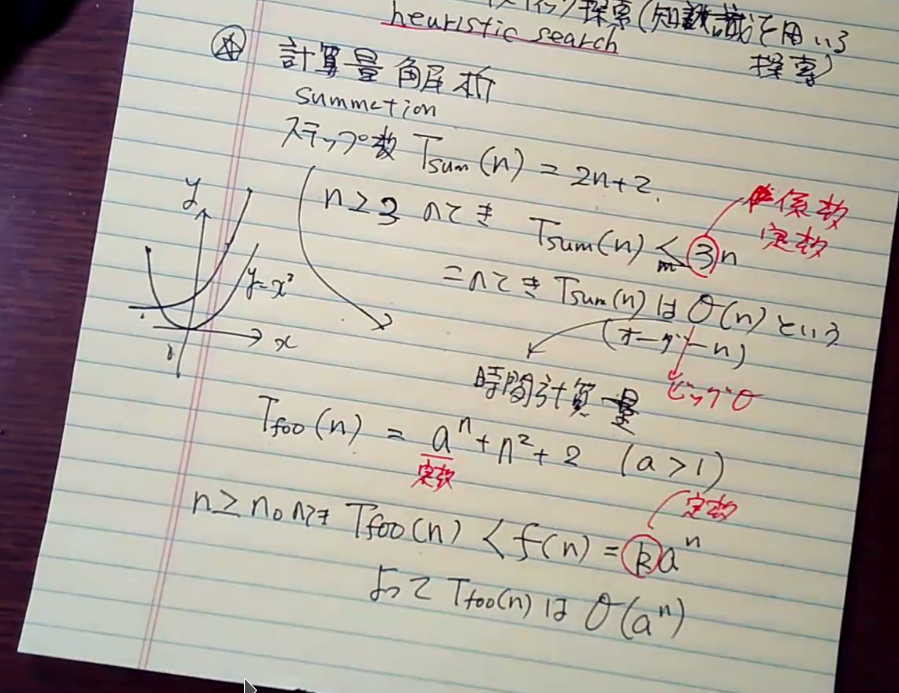 探索(知識を用いる
heuristic search
探索)
計算量解析
summation
ステップ数 Tsum(n) = 2n+2
n≧3 のとき Tsum(n) ≦ 3n
係数
定数
このとき Tsum(n)は O(n)という
(オーダーn)
時間計算量
ビッグO
y
y=x²
x
0
Tfoo(n) = aⁿ+n²+2 (a>1)
定数
n≧n₀のとき Tfoo(n) < f(n) = kaⁿ
定数
よって Tfoo(n)は O(aⁿ)